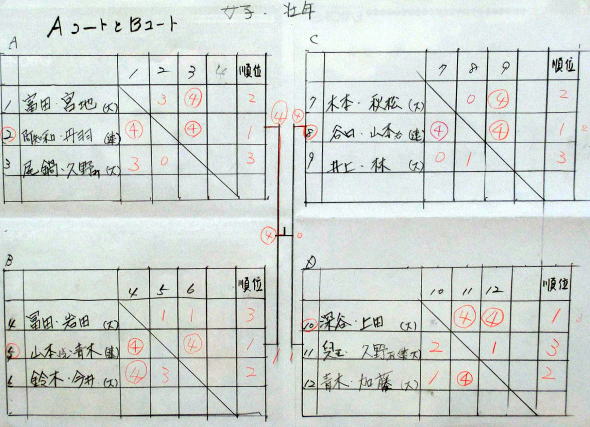 女子・壮年
AコートとBコート
A
1 2 3 4 順位
1 富田・宮地(大) 3 ④ 2
2 阿知和・丹羽 ④ ④ 1
3 尾鍋・久野 (大) 3 0 3
C
7 8 9 順位
7 木本・秋松(大) 0 ④ 2
8 谷口・山本 ④ ④ 1
9 井上・林 (大) 0 1 3
④ ④
④ 0
1 1
B
4 5 6 順位
4 富田・岩田 (大) 1 1 3
5 山本・青木 ④ ④ 1
6 鈴木・今井 (大) ④ 3 2
D
10 11 12 順位
10 深谷・上田 (大) ④ ④ 1
11 久野 2 1 3
12 青木・加藤(大) 1 ④ 2